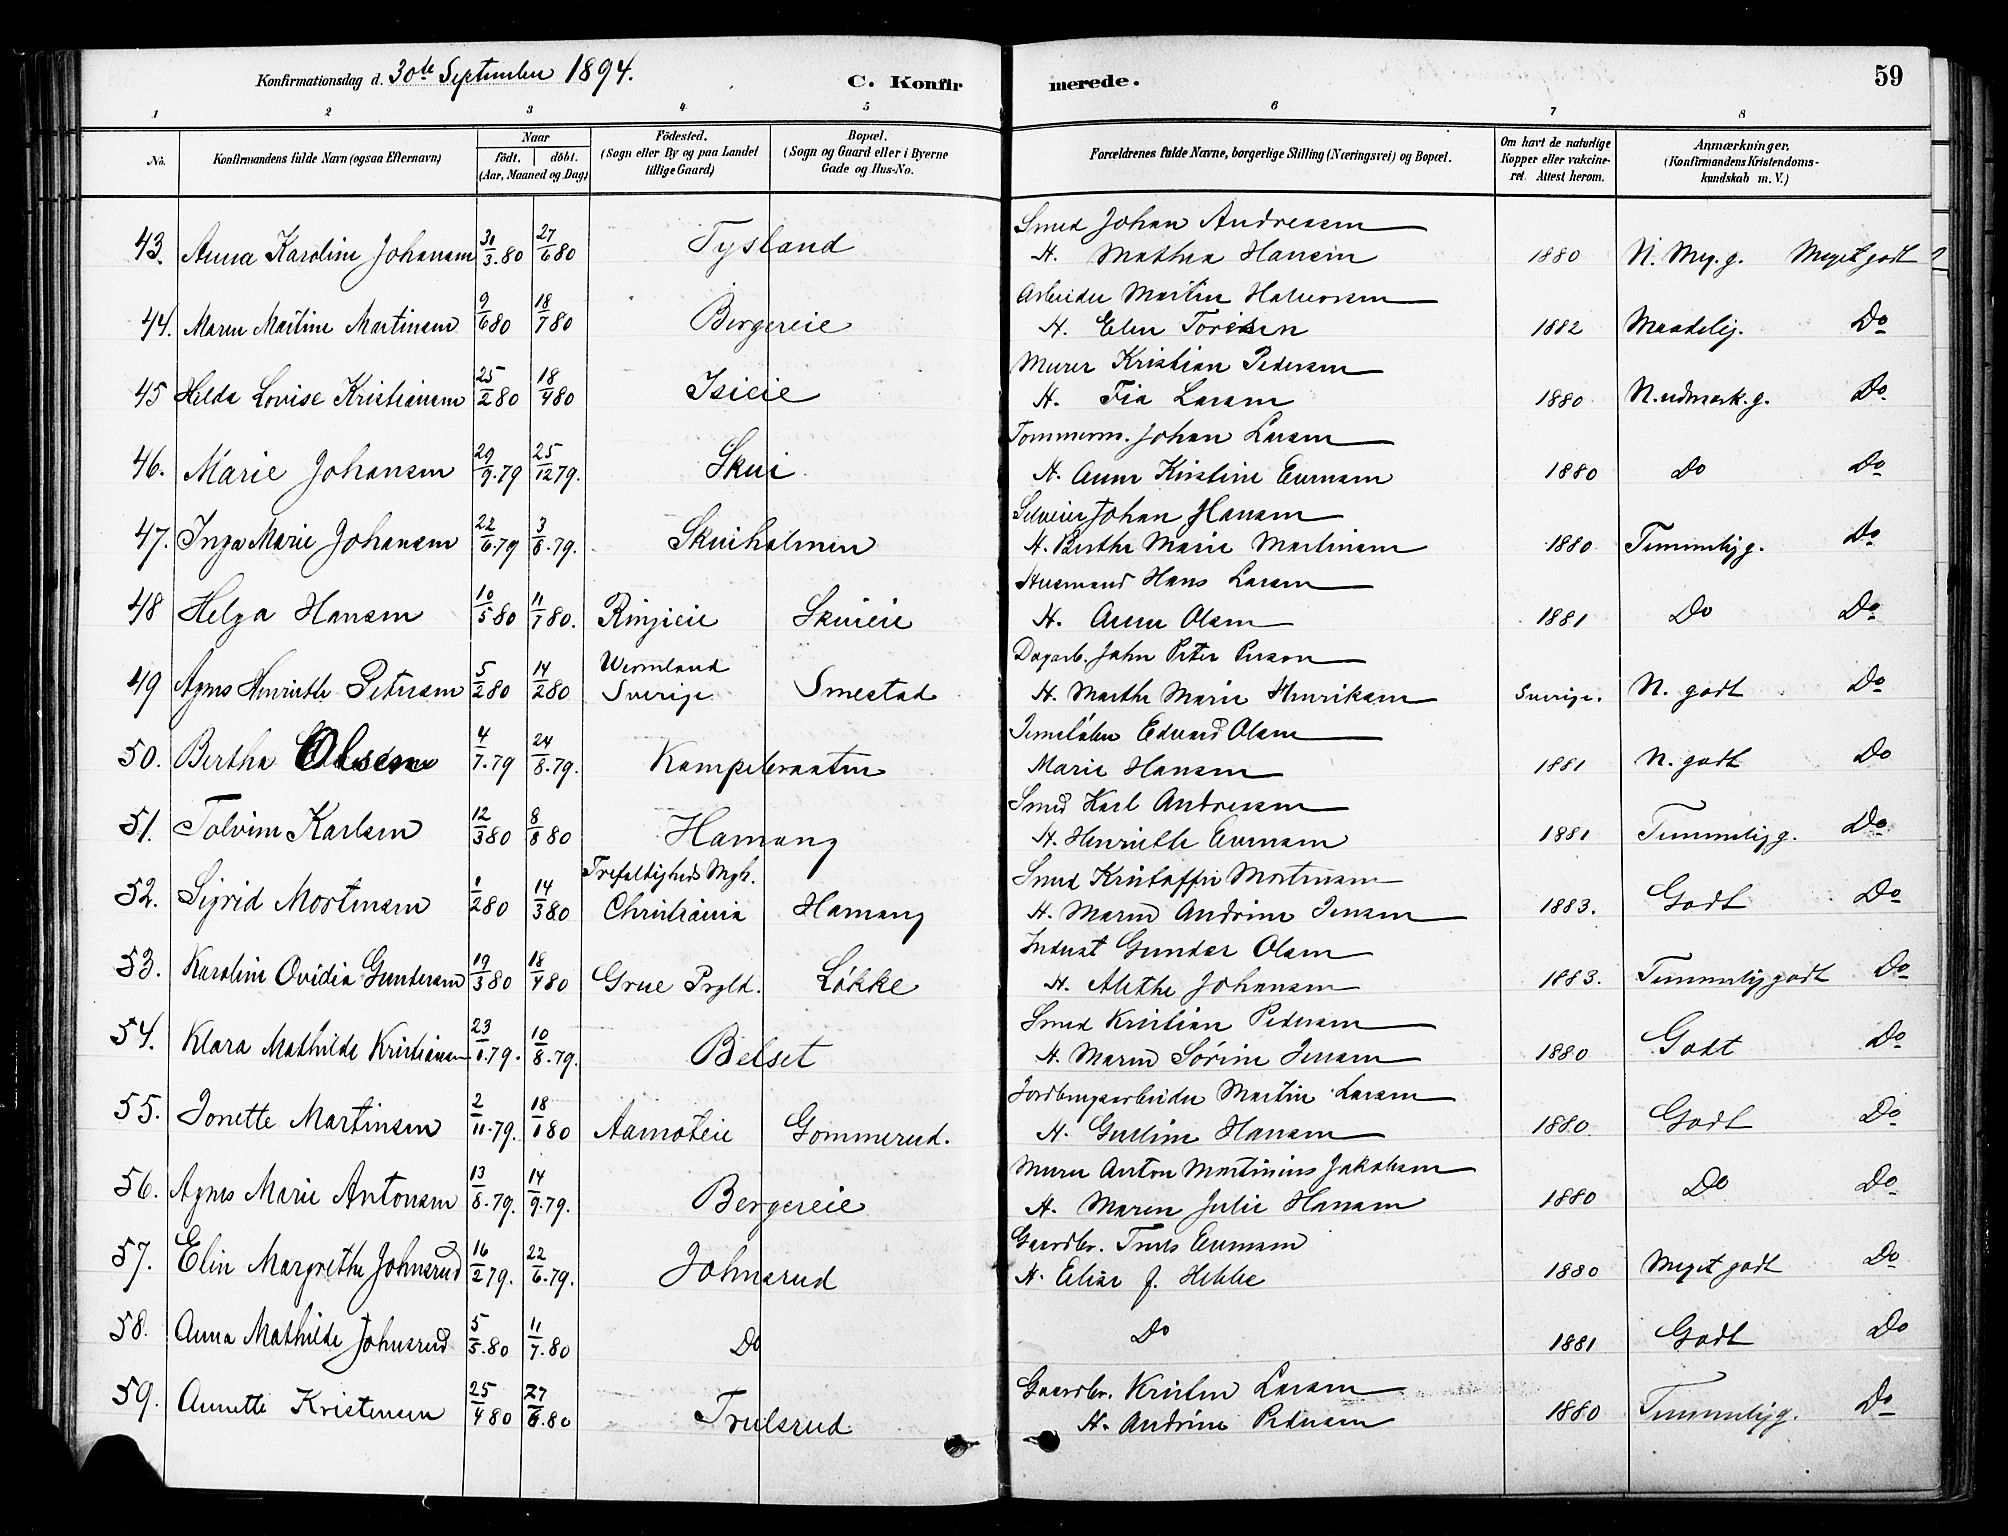 Konfirmationsdag d. 30te September 1894.
C. Konfirmerede.
59
1 2 3 4 5 6 7 8
No. Konfirmandens fulde Navn (ogsaa Efternavn) Naar født. døbt. (Aar, Maaned og Dag) Fødested. (Sogn eller By og paa Landet tillige Gaard) Bopæl. (Sogn og Gaard eller i Byerne Gade og Hus-No. Forældrenes fulde Navne, borgerlige Stilling (Næringsvei) og Bopæl. Om havt de naturlige Kopper eller vakcineret. Attest herom. Anmærkninger. (Konfirmandens Kristendomskundskab m. V.)
43. Anna Karoline Johansen 31/3.80 27/6 80 Tysland Smed Johan Andreasen
H. Mathea Hansen 1880 N. Meg. g. Meget godt
44. Maren Martine Martinsen 9/6 80 18/7 80 Bergereie Arbeider Martin Halvorsen
H. Elen 1882 Maadelig. Do
45 Helda Lovise Kristiansen 25/2 80 18/4 80 Isieie Murer Kristian Pedersen
H. Fia Larsen 1880 N. udmærk. g. Do
46. Marie Johansen 29/9.79 25/12 79. Skui Tømmerm. Johan Larsen
H. Anne Kirstine Evensen 1880 Do Do
47. Inga Marie Johansen 22/6.79 3/8.79. Skuiholmen Selveier Johan Hansen
H. Berthe Marie Martinsen 1880 Temmelig g. Do
48 Helga Hansen 10/5 80 11/7 80. Ringieie Skuieie Husmand Hans Larsen
H. Anne Olsen 1881 Do Do
49 Agnes Henriette Petersen 5/2 80 14/2 80 Wermland Sverige Smestad Dagarb. John Peter Person
H. Marthe Marie Henriksen Sverige. N. godt Do
50. Bertha Olsen 4/7.79 24/8.79. Kampebraaten Edvard Olsen
Marie Hansen 1881 N. godt Do
51. Tolvine Karlsen 12/3 80 8/8 80 Hamang Smed Karl Andreasen
H. Henriette Evensen 1881 Temmelig g. Do
52. Sigrid Mortensen 1/2 80 14/3 80 Trefoldigheds Mgh. Christiania Hamang Smed Kristoffer Mortensen
H. Maren Andrine Jensen 1883. Godt Do
53. Karoline Ovidia Gundersen 19/3 80 18/4 80 Grue Prgld. Løkke Inderst Gunder Olsen
H. Alethe Johansen 1883. Temmelig godt Do
54. Klara Mathilde Kristiansen 23/1.79. 10/8.79. Belset Smed Kristian Pedersen
H. Maren Sørine Jensen 1880 Godt Do
55. Jonette Martinsen 2/11.79. 18/1 80 Aamoteie Gommerud. Jordbrugsarbeider Martin Larsen
H. Gulline Hansen 1880. Godt Do
56. Agnes Marie Antonsen 13/8.79. 14/9.79. Bergereie Murer Anton Martinius Jakobsen
H. Maren Julie Hansen 1880 Do Do
57. Elin Margrethe Johnsrud 16/2 79. 22/6.79. Johnsrud Gaardbr. Truls Evensen
H. Elise f. Hebbe 1880 Meget godt Do
58. Anna Mathilde Johnsrud 5/5.80 11/7.80 Do Do 1881 Godt Do
59. Annette Kristensen 25/4 80 27/6.80 Trulsrud Gaardbr. Kristen Larsen
H. Andrine Pedersen 1880 Temmelig g. Do